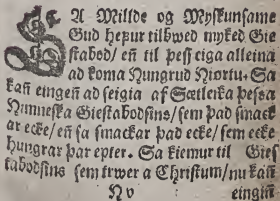 SA Millde og Myskunsame
Gud hefur tilbwed myked Gie
stabod/ eñ til þess eiga alleina
ad koma Hungrud Hiortu. Sa
kañ eingeñ ad seigia af Sætleika þessa
Himneska Giestabodsins/ sem þad smack
ar ecke/ eñ sa smackar þad ecke/ sem ecke
hungrar þar epter. Sa kiemur til Gies
tabodsins sem trwer a Christum/ nu kañ
N v eingiñ